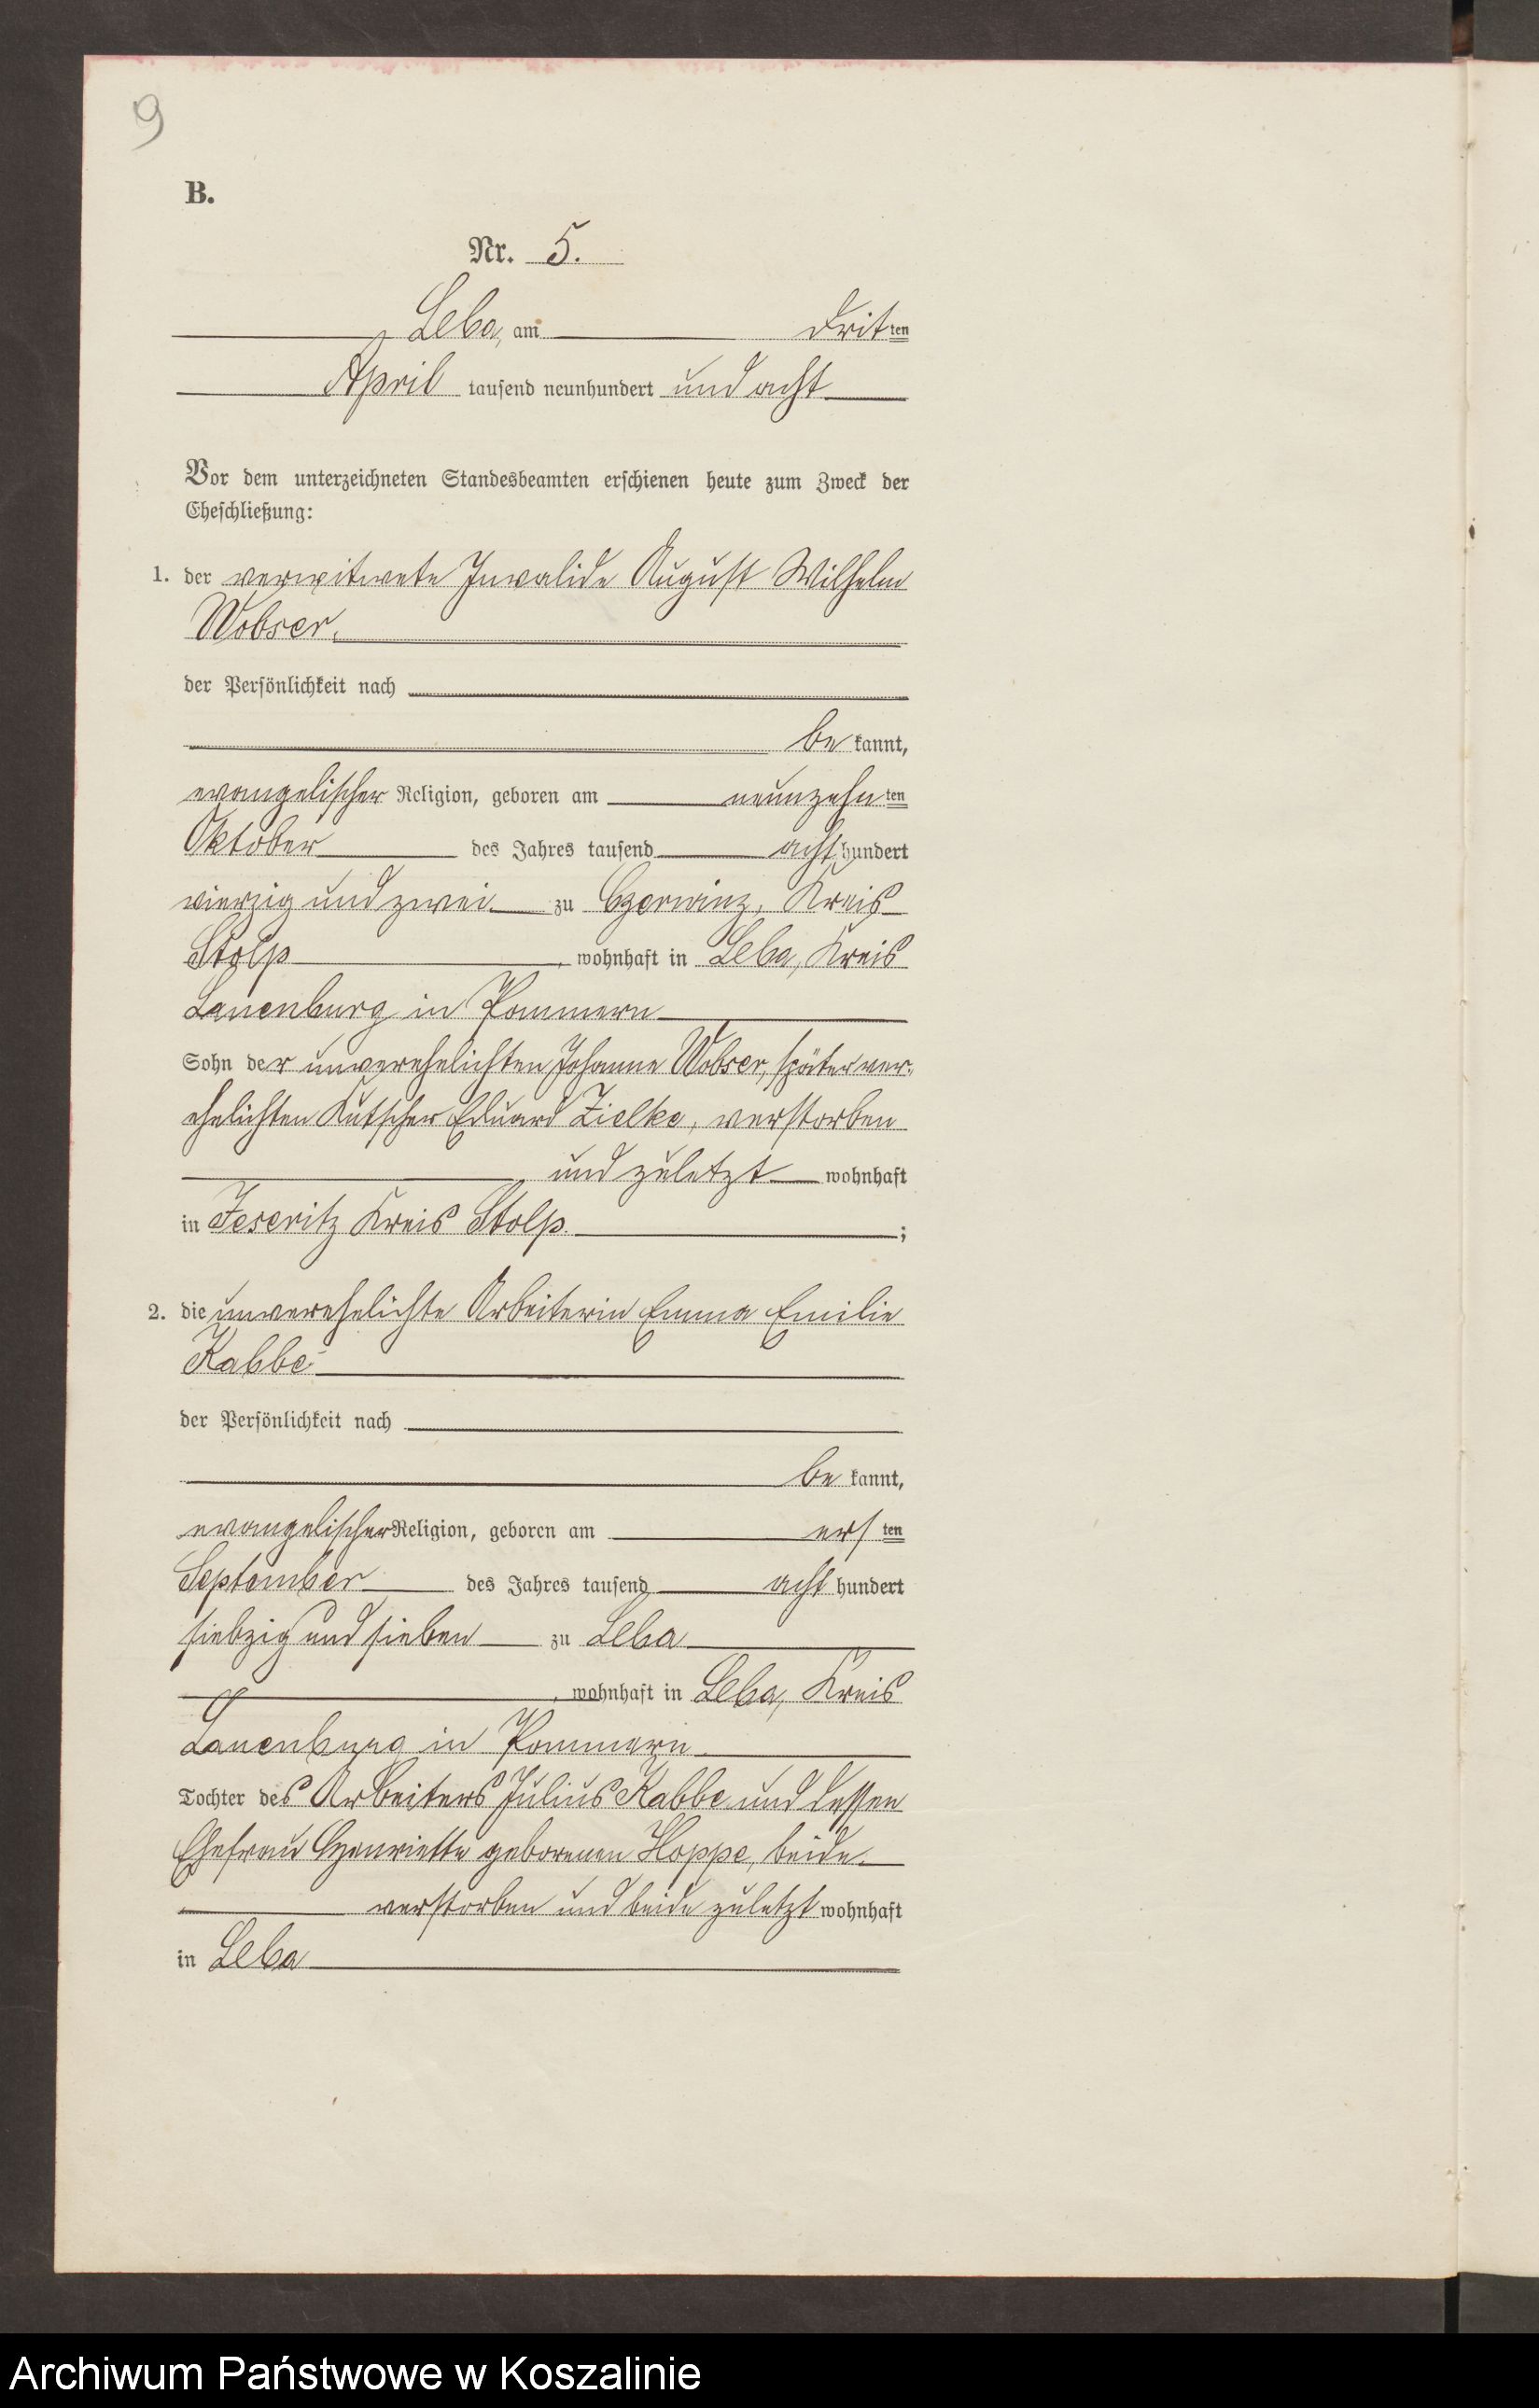 9
B.
Nr. 5.
Leba, am dritten
April tausend neunhundert und acht
Vor dem unterzeichneten Standesbeamten erschienen heute zum Zweck der
Eheschließung:
1. der verwitwete Invalide August Wilhelm
Wobser,
der Persönlichkeit nach
be kannt,
evangelischer Religion, geboren am neunzehnten
Oktober des Jahres tausend acht hundert
vierzig und zwei zu Czerwinz, Kreis
Stolp, wohnhaft in Leba, Kreis
Lauenburg in Pommern
Sohn der unverehelichten Johanne Wobser, später ver-
ehelichten Kutscher Eduard Zielke, verstorben
und zuletzt wohnhaft
in Jeseritz Kreis Stolp. ;
2. die unverehelichte Arbeiterin Emma Emilie
Kabbe
der Persönlichkeit nach
be kannt,
evangelischer Religion, geboren am ersten
September des Jahres tausend acht hundert
siebzig und sieben zu Leba
, wohnhaft in Leba, Kreis
Lauenburg in Pommern
Tochter des Arbeiters Julius Kabbe und dessen
Ehefrau Henriette geborenen Hoppe, beide
verstorben und beide zuletzt wohnhaft
in Leba
Archiwum Państwowe w Koszalinie